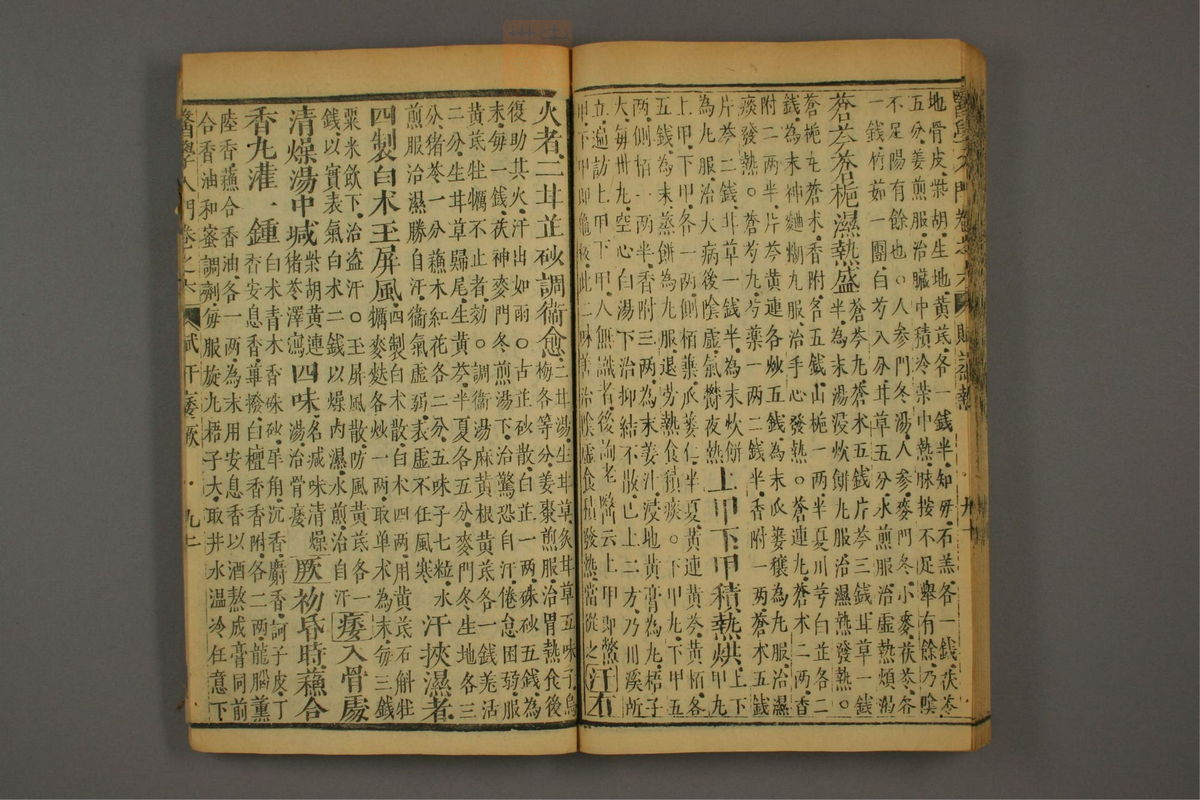 地骨皮柴胡生地黃芪各一錢半知母石羔各一錢茯苓
五分姜煎服治臟中積冷柴中熱脉按不足舉有餘乃陰
不足陽有餘也〇人參門冬湯人參麥門冬小麥茯苓各
一錢竹茹一團白芍八分甘草五分水煎服治虛熱煩渴
蒼芩蒼梔濕熱盛蒼芩丸蒼术五錢片芩三錢甘草一錢
半為末湯沒炊餅丸服治濕熱發熱〇
蒼梔丸蒼术香附各五錢山梔一兩半夏川芎白芷各二
錢為末神麯糊丸服治手心發熱〇蒼連丸蒼术二兩香
附二兩半片芩黃連各炒五錢為末瓜蔞穰為丸服治濕
痰發熱〇芩芍丸芍藥一兩二錢半香附一兩蒼术五錢
片芩二錢甘草一錢半為末炊餅
為丸服治大病後陰虛氣欝夜熱上甲下甲積熱烘上下甲丸
上甲下甲各一兩側栢葉瓜蔞仁半夏黃連黃芩黃栢各
五錢為末蒸餅為丸服退勞熱食積痰〇下甲丸下甲五
兩側栢一兩半香附三兩為末姜汁浸地黃膏為丸梧子
大每卅丸空心白湯下治抑結不散已上二方乃川溪所
立遍訪上甲下甲人無識者後詢老醫云上甲即鱉
甲下甲即龜板此二味善治陰虛食積發熱當從之汗有
火者二甘芷砂調衛愈二甘湯生甘草炙甘草五味子烏
梅各等分姜棗煎服治胃熱食後
復助其火汗出如雨〇古芷砂散白芷一兩硃砂五錢為
末每一錢茯神麥門冬煎湯下治驚恐自汗倦怠困弱服
黃芪牡犡不止者効〇調衛湯麻黃根黃芪各一錢羌活
二分生甘草歸尾生黃芩半夏各五分麥門冬生地各三
分猪苓一分蘓木紅花各二分五味子七粒水
煎服治濕勝自汗衛氣虛弱表虛不任風寒汗挾濕者
四製白术玉屏風四製白术散白术四兩用黃芪石斛牡
犡麥麩各炒一兩取单术為末每三錢
粟米飲下治盗汗〇玉屏風散防風黃芪各一
錢以實表氣白术二錢以燥內濕水煎治自汗痿入骨處
清燥湯中減柴胡黃連四味名減味清燥
猪苓澤瀉湯治骨痿厥初昏時蘓合
香丸灌一鍾白术青木香硃砂犀角沉香麝香訶子皮丁
香安息香蓽撥白檀香香附各二兩龍腦薰
陸香蘓合香油各一兩為末用安息香以酒熬成膏同前
合香油和蜜調劑每服旋丸梧子大取井水温冷任意下
醫學入門卷之六 賦汗痿厥 九二